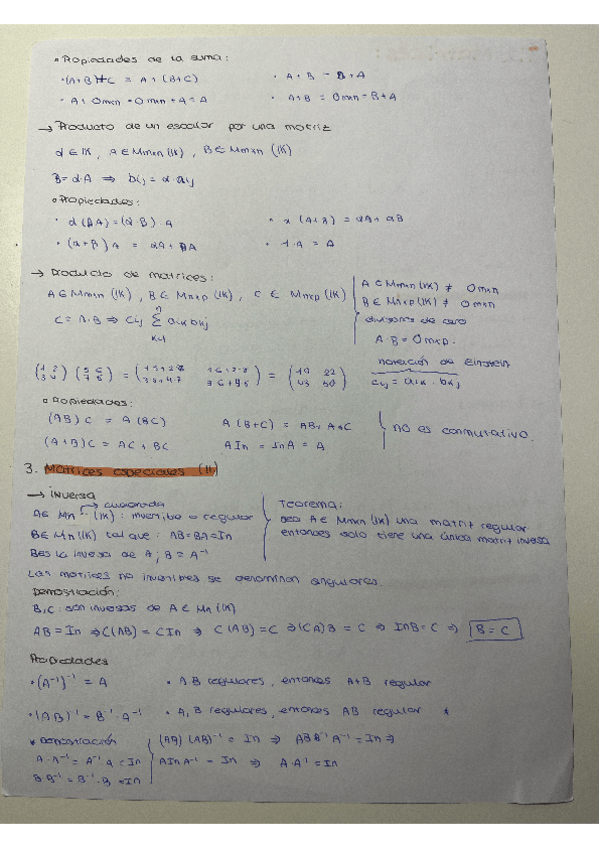 • Propiedades de la suma:
• (A+B)+C = A+(B+C) • A+B = B+A
• A+Omxn = Omxn+A = A • A+B = Omxn = B+A
→ Producto de un escalar por una matriz
α ∈ IK, A ∈ Mmxn (IK), B ∈ Mmxn (IK)
B = α·A ⇒ bij = α·aij
• Propiedades:
• α(βA) = (α·β)·A • α(A+B) = αA + αB
• (α+β)A = αA + βA • 1·A = A
→ Producto de matrices:
A ∈ Mmxn (IK), B ∈ Mnxp (IK), C ∈ Mmxp (IK)
A ∈ Mmxn (IK) ≠ Omxn
B ∈ Mnxp (IK) ≠ Omxn
divisores de cero
A·B = Omxp.
C = A·B ⇒ Cij Σ aik bkj
n
K=1
notación de Einstein
cij = aik · bkj
(1 2 3 4) (5 6 7 8) = (1·5+2·7 1·6+2·8 3·5+4·7 3·6+4·8) = (19 22 43 50)
• Propiedades:
(AB)C = A(BC) A(B+C) = AB+AC
(A+B)C = AC+BC AIn = InA = A
no es conmutativo.
3. Matrices especiales (II)
→ inversa
cuadrada
A ∈ Mn (IK): invertible o regular
B ∈ Mn (IK) tal que: AB=BA=In
B es la inversa de A; B = A⁻¹
Teorema:
sea A ∈ Mnxn (IK) una matriz regular
entonces solo tiene una única matriz inversa
Las matrices no invertibles se denominan singulares.
Demostración:
B, C: son inversas de A ∈ Mn (IK)
AB = In ⇒ C(AB) = CIn ⇒ C(AB) = C ⇒ (CA)B = C ⇒ InB = C ⇒ B = C
Propiedades
• (A⁻¹)⁻¹ = A • A, B regulares, entonces A+B regular
• (AB)⁻¹ = B⁻¹·A⁻¹ • A, B regulares, entonces AB regular *
* Demostración
A·A⁻¹ = A⁻¹·A = In
B·B⁻¹ = B⁻¹·B = In
(AB)(AB)⁻¹ = In ⇒ ABB⁻¹A⁻¹ = In ⇒
AInA⁻¹ = In ⇒ A·A⁻¹ = In